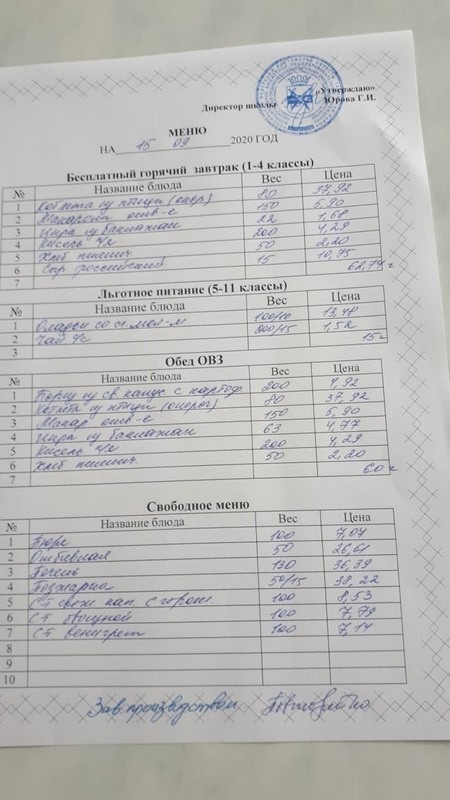 «Утверждаю»
Директор школы Юрова Г.И.
МЕНЮ
НА 15 09 2020 ГОД
Бесплатный горячий завтрак (1-4 классы)
№ Название блюда Вес Цена
1 Котлета из птицы (окор) 80 37,92
2 Макароны отв-е 150 5,90
3 Икра из баклажан 22 1,68
4 Кисель 200 4,29
5 Хлеб пшенич. 50 2,20
6 Сыр российский 15 10,75
7 62,74
Льготное питание (5-11 классы)
№ Название блюда Вес Цена
1 Оладьи со сг.мол-м 100/10 13,48
2 Чай 200/15 1,52
3 15
Обед ОВЗ
№ Название блюда Вес Цена
1 Борщ из св. капус с картоф. 200 4,92
2 Котлета из птицы (окороч) 80 37,92
3 Макар отв-е 150 5,90
4 Икра из баклажан 63 4,77
5 Кисель 200 4,29
6 Хлеб пшенич. 50 2,20
7 60
Свободное меню
№ Название блюда Вес Цена
1 Пюре 100 7,07
2 Отбивная 50 26,61
3 Печень 130 36,39
4 50/15 38,22
5 СТ свеж. кап. с морк. 100 8,53
6 СТ 100 7,79
7 СТ венигрет 100 7,14
8
9
10
Зав. производством